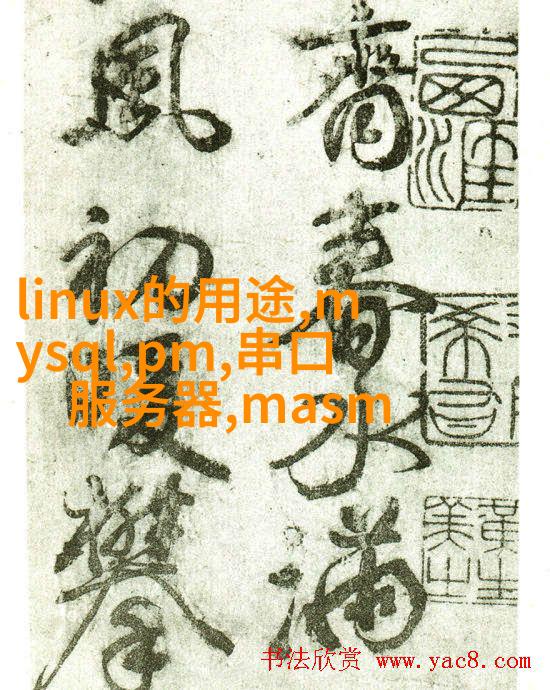 春水滿
風初暖攀
linux的用途,m
ysql,pm,串口
服务器,masm
书法欣赏 www.yac8.com